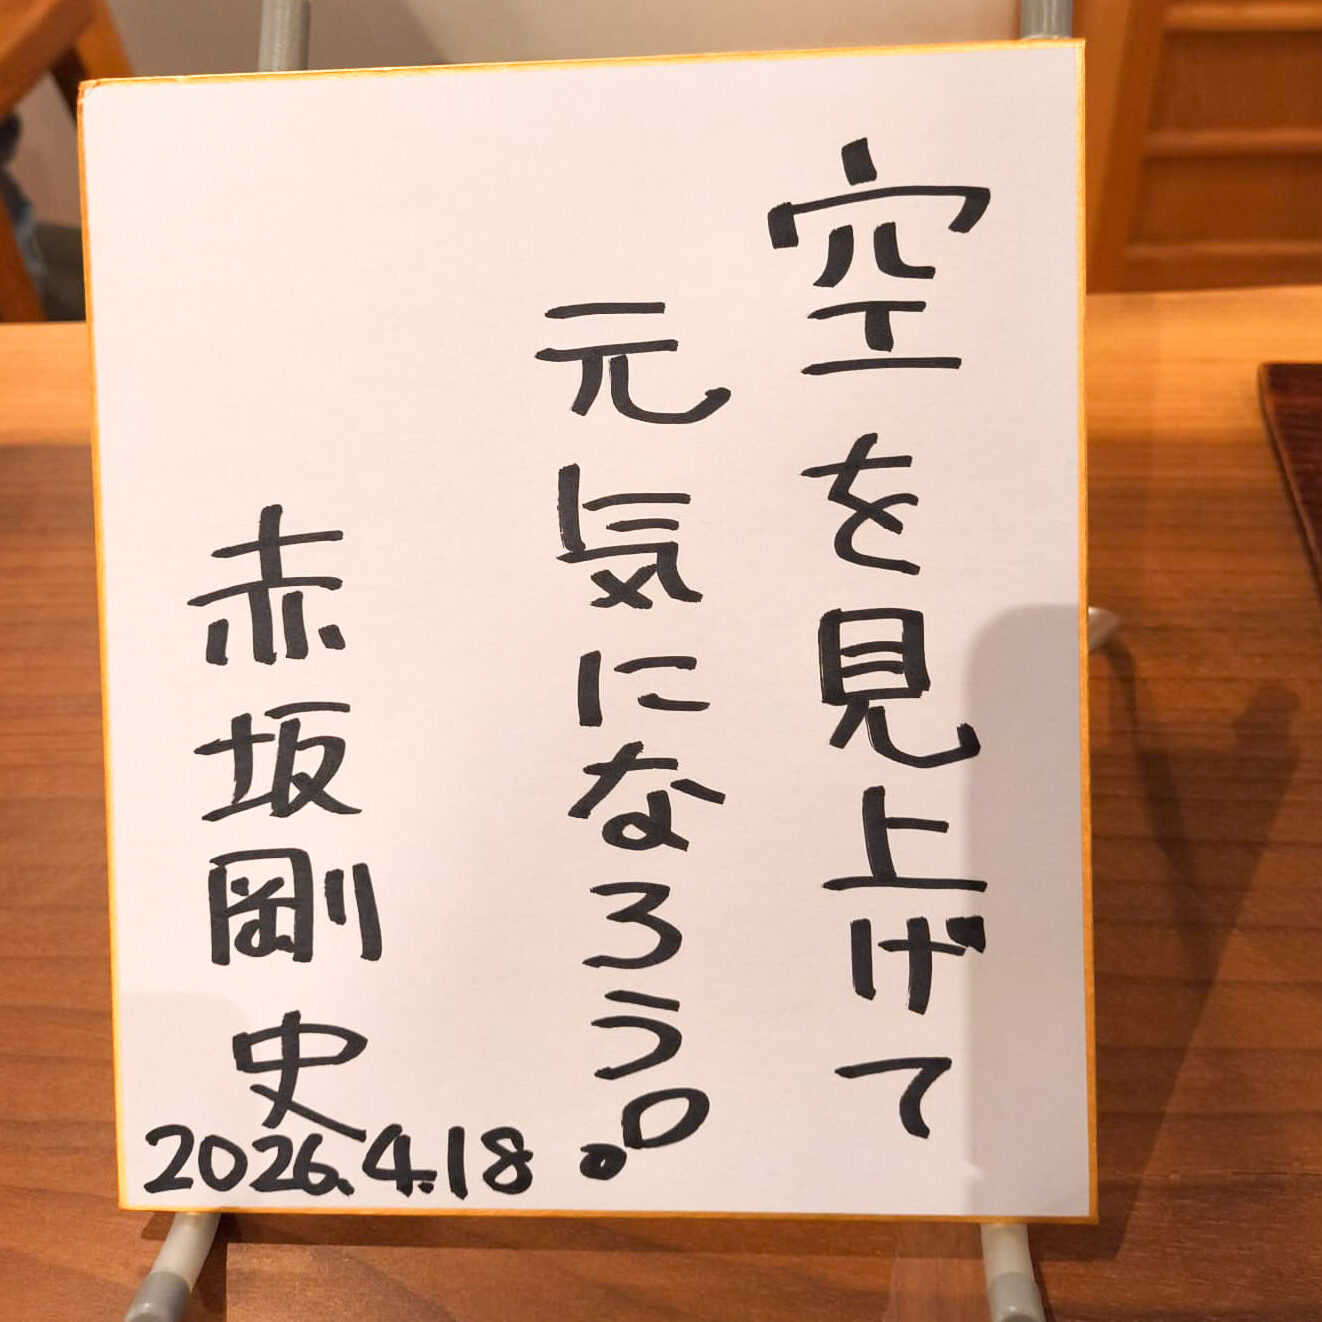 空を見上げて
元気になろう。
赤坂剛史
2026.4.18